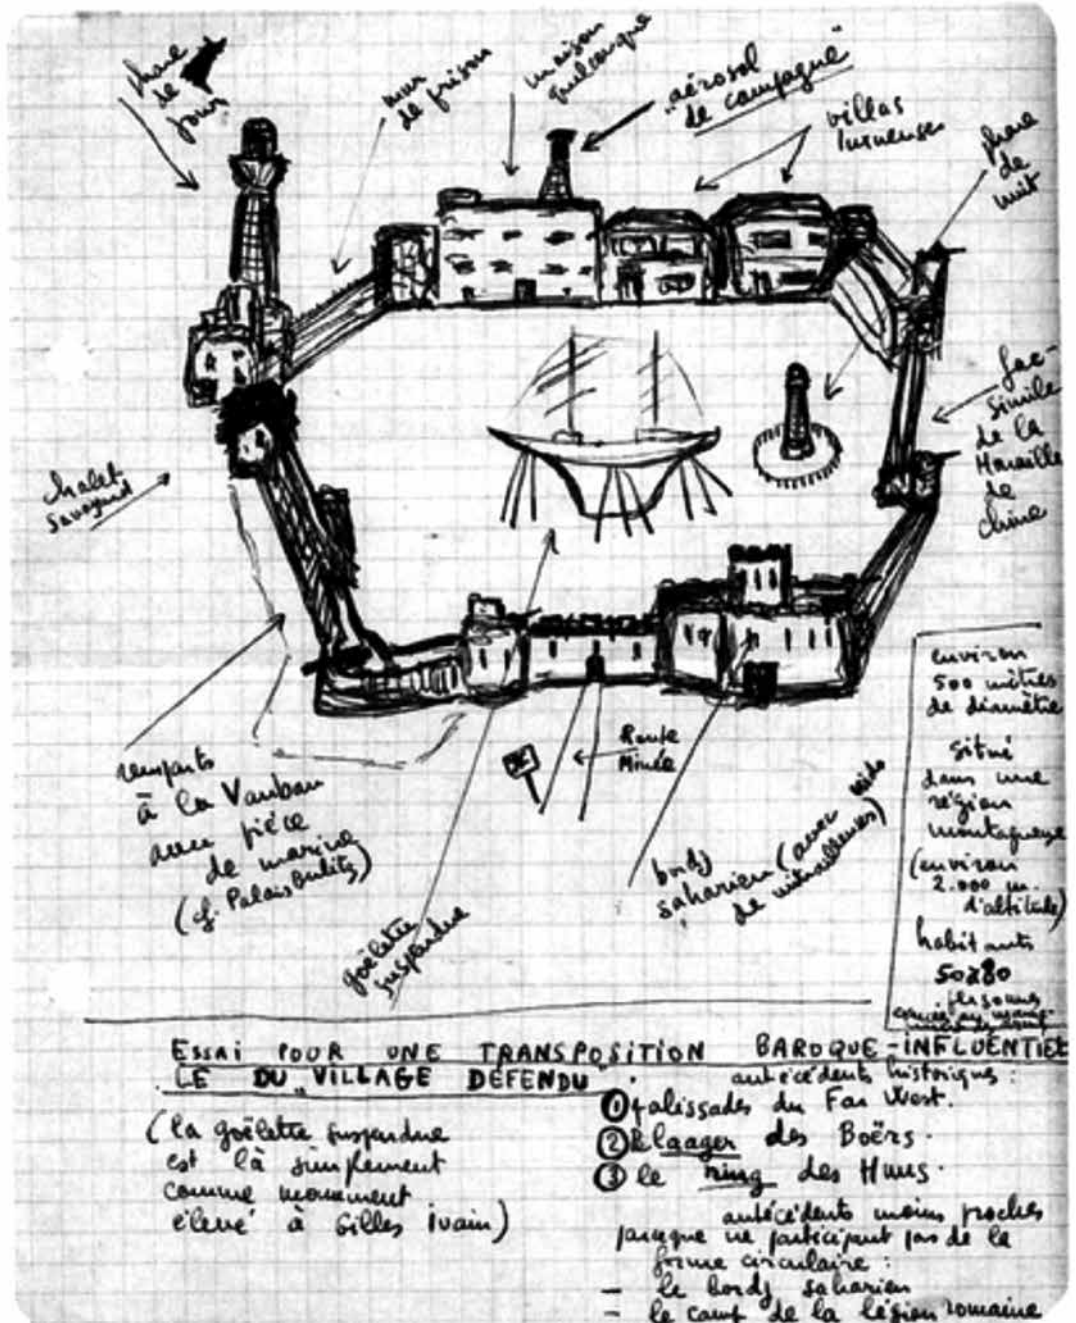 phare
de
jour
mur
de prison
maison
quelconque
"aérosol
de campagne"
villas
luxueuses
phare
de
nuit
fac-
simile
de la
Muraille
de
Chine
chalet
savoyard
remparts
à la Vauban
avec pièce
de marine
(cf. Palais
Route
Minée
bordj
saharien (avec nids
de mitrailleuses)
goëlette
suspendue
environ
500 mètres
de diamètre
situé
dans une
région
montagneuse
(environ
2.000 m.
d'altitude)
habitants
50 à 80
personnes
ESSAI POUR UNE TRANSPOSITION BAROQUE-INFLUENTIEL
LE DU "VILLAGE DÉFENDU".
(la goëlette suspendue
est là simplement
comme monument
élevé à Gilles Ivain)
antécédents historiques :
① palissades du Far West.
② le laager des Boërs.
③ le ring des Huns.
antécédents moins proches
parceque ne participant pas de la
forme circulaire :
- le bordj saharien
- le camp de la légion romaine